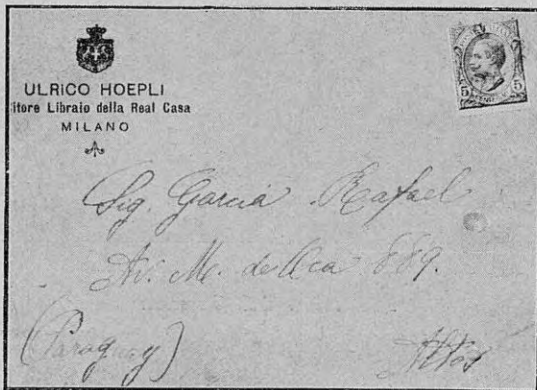 ULRICO HOEPLI
itore Libraio della Real Casa
MILANO
5 5
Sig. Garcia Rafael
Av. M. de Oca 889.
(Paraguay)
Altos